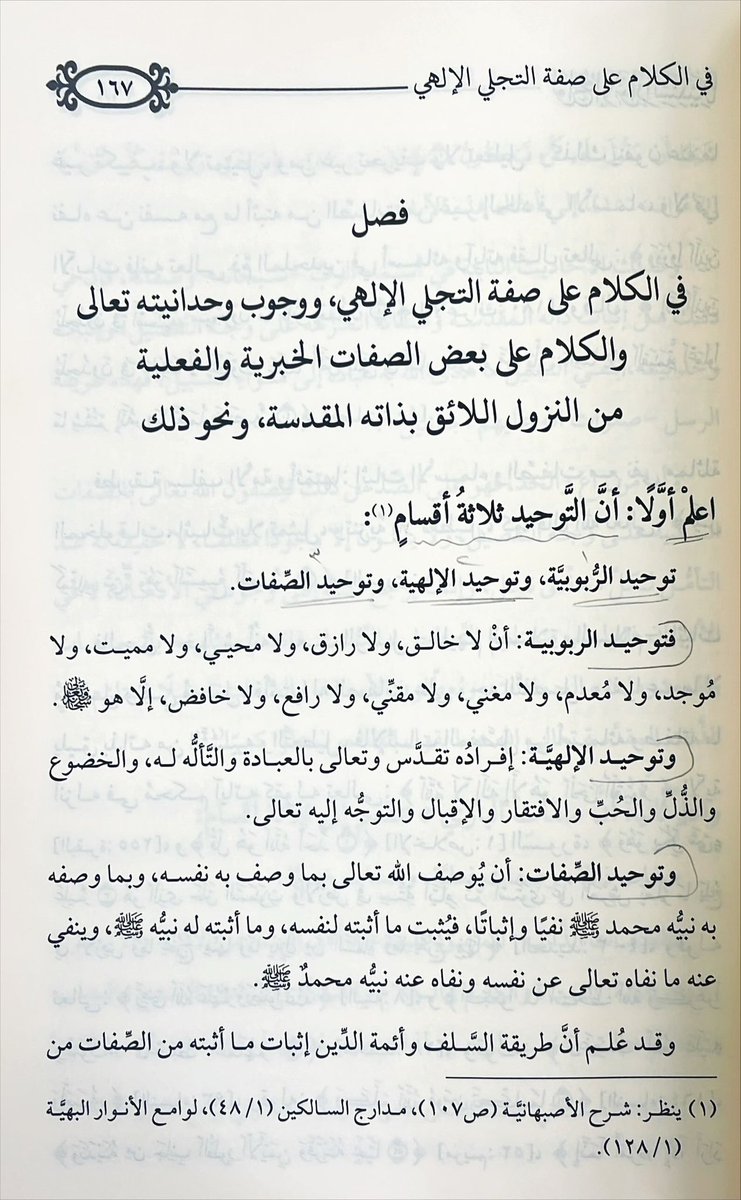 في الكلام على صفة التجلي الإلهي
١٦٧
فصل
في الكلام على صفة التجلي الإلهي، ووجوب وحدانيته تعالى
والكلام على بعض الصفات الخبرية والفعلية
من النزول اللائق بذاته المقدسة، ونحو ذلك
اعلمْ أوَّلًا: أنَّ التَّوحيد ثلاثةُ أقسامٍ(١):
١ ٢ ٣
توحيد الرُّبوبيَّة، وتوحيد الإلهية، وتوحيد الصِّفات.
فتوحيد الربوبية: أنْ لا خالق، ولا رازق، ولا محيي، ولا مميت، ولا
مُوجد، ولا مُعدم، ولا مغني، ولا مقنِّي، ولا رافع، ولا خافض، إلَّا هو ﷻ.
وتوحيد الإلهيَّة: إفرادُه تقدَّس وتعالى بالعبادة والتَّألُّه له، والخضوع
والذُّلِّ والحُبِّ والافتقار والإقبال والتوجُّه إليه تعالى.
وتوحيد الصِّفات: أن يُوصف الله تعالى بما وصف به نفسه، وبما وصفه
به نبيُّه محمد ﷺ نفيًا وإثباتًا، فيُثبت ما أثبته لنفسه، وما أثبته له نبيُّه ﷺ، وينفي
عنه ما نفاه تعالى عن نفسه ونفاه عنه نبيُّه محمدٌ ﷺ.
وقد عُلم أنَّ طريقة السَّلف وأئمة الدِّين إثبات ما أثبته من الصِّفات من
(١) ينظر: شرح الأصبهانيَّة (ص١٠٧)، مدارج السالكين (٤٨/١)، لوامع الأنوار البهيَّة
(١٢٨/١).